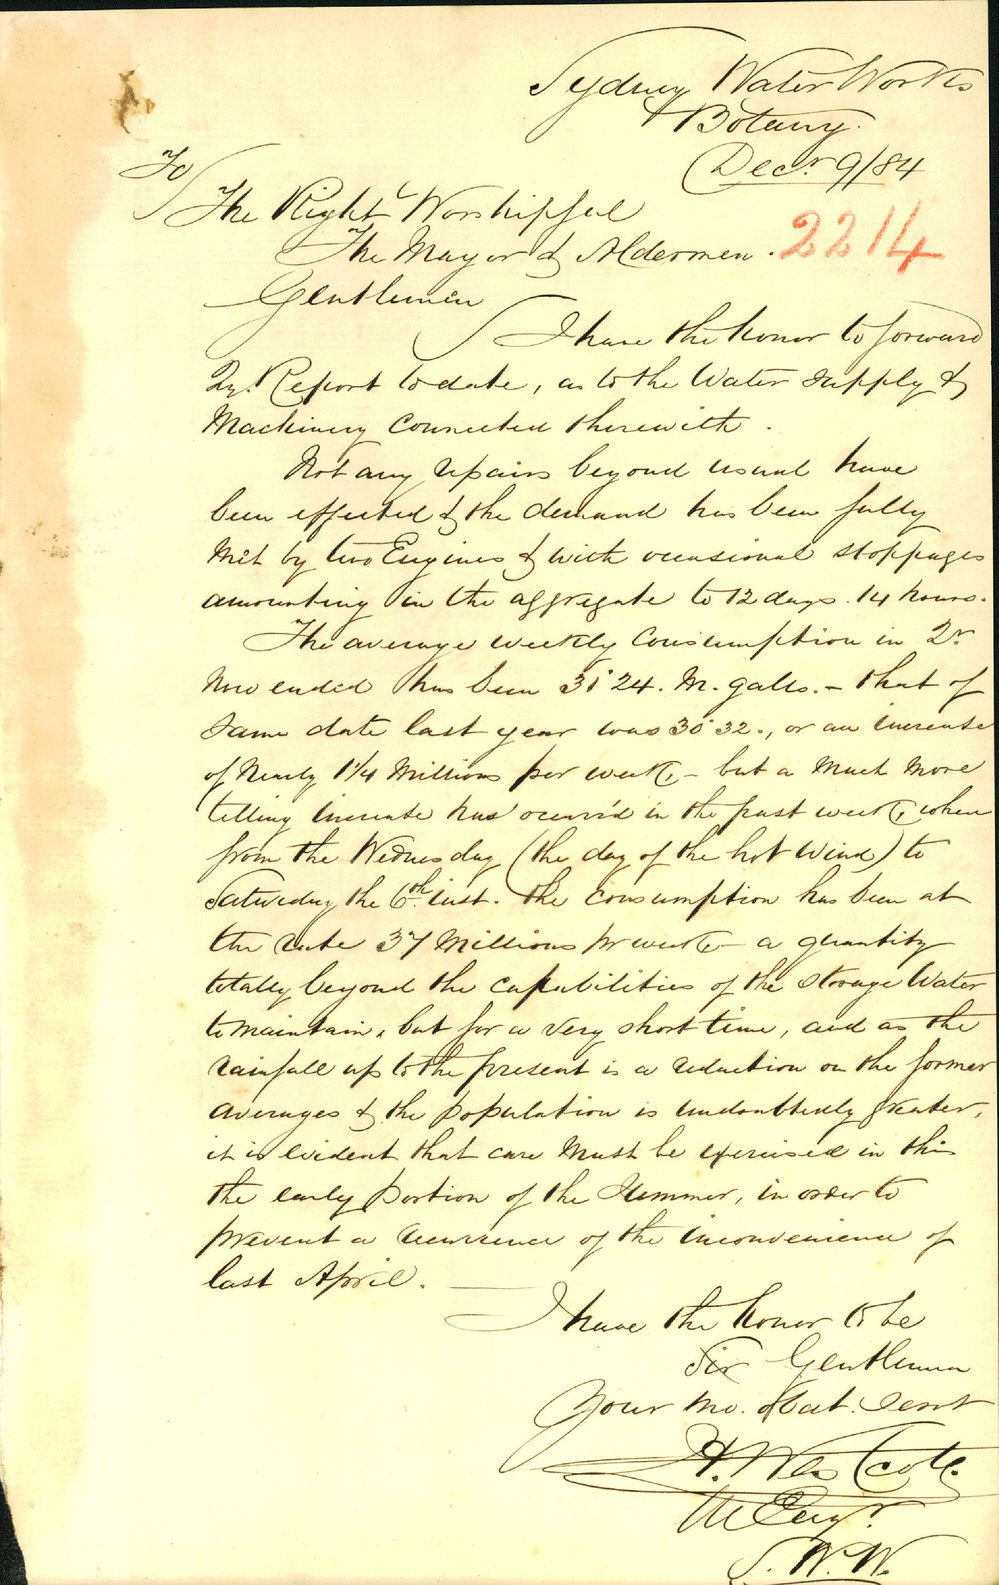 Sydney Water Works
Botany.
Decr. 9/84
To
The Right Worshipful
The Mayor & Aldermen.
2214
Gentlemen
I have the honor to forward
Qy. Report to date, as to the Water Supply &
Machinery connected therewith.
Not any repairs beyond usual have
been effected & the demand has been fully
met by two Engines & with occasional stoppages
amounting in the aggregate to 12 days. 14 hours.
The average weekly consumption in Qr.
Now ended has been 31.24. M. galls. - that of
same date last year was 30.32., or an increase
of Nearly 1 1/4 Millions per week, - but a much more
telling increase has occurr'd in the past week, when
from the Wednesday (the day of the hot Wind) to
Saturday the 6th inst. the consumption has been at
the rate 37 Millions pr week - a quantity
totally beyond the capabilities of the storage Water
to maintain, but for a very short time, and as the
rainfall up to the present is a reduction on the former
averages & the population is undoubtedly greater,
it is evident that care must be exercised in this
the early portion of the Summer, in order to
prevent a recurrence of the inconvenience of
last April.
I have the honor to be
Sir Gentlemen
Your Mo. Obdt. Servt
H. Westcott.
M Engr.
S. W. W.